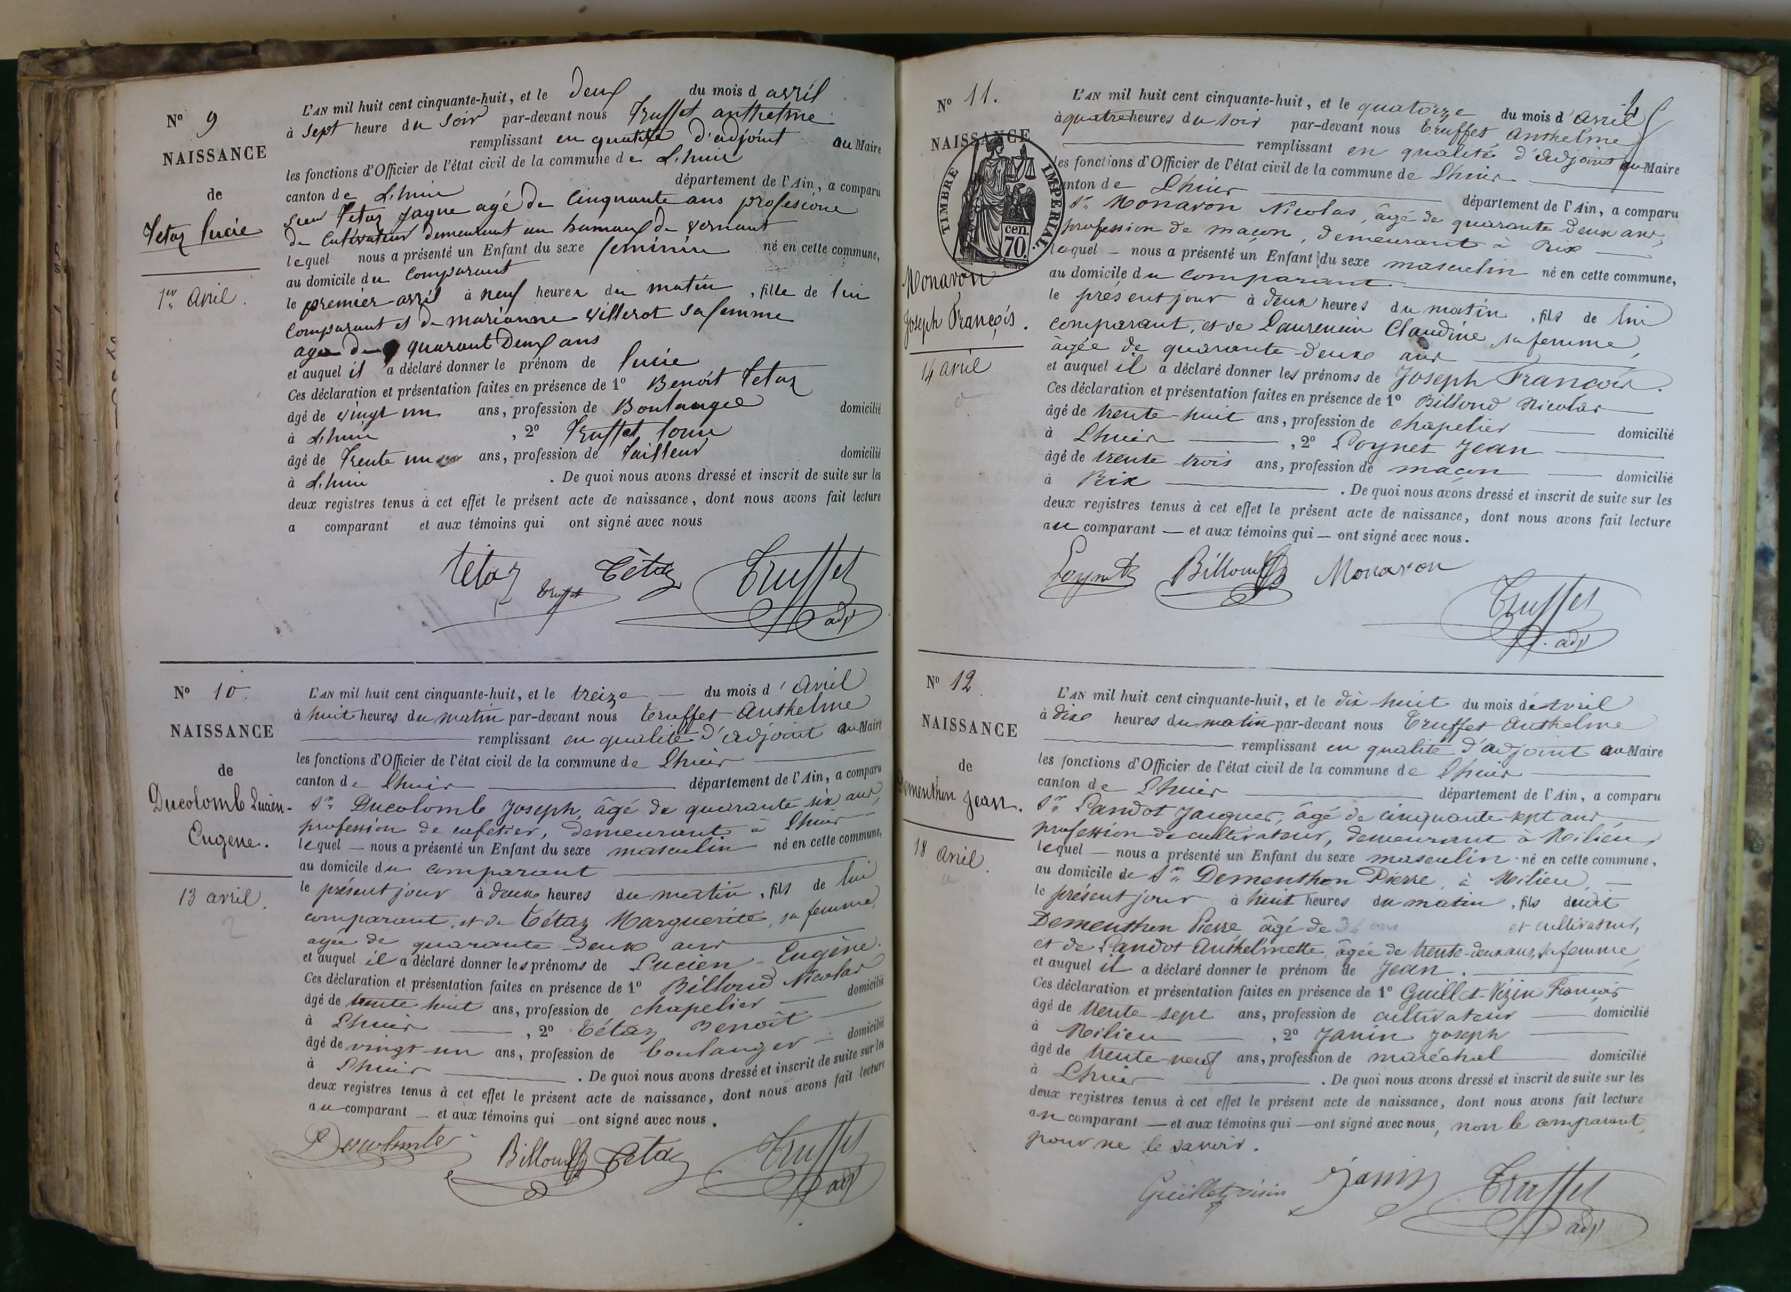 Nº 9
NAISSANCE
de
Tetaz lucie
1er avril.
L'AN mil huit cent cinquante-huit, et le deux du mois d avril
à sept heure du soir par-devant nous Truffet anthelme
remplissant en qualité d'adjoint au Maire
les fonctions d'Officier de l'état civil de la commune de Lhuis
canton de Lhuis département de l'Ain, a comparu
sieur Tetaz Jaque agé de cinquante ans profesione
de Cultivateur demeurant au hameau de vornant
lequel nous a présenté un Enfant du sexe féminin né en cette commune,
au domicile du comparant
le premier avril à neuf heures du matin, fille de lui
comparant et de marianne villerot sa femme
agée de quarant deux ans
et auquel il a déclaré donner le prénom de lucie
Ces déclaration et présentation faites en présence de 1º Benoit Tetaz
âgé de vingt un ans, profession de Boulangee domicilié
à Lhuis, 2º Truffet louis
âgé de Trente un ans, profession de Tailleur domicilié
à Lhuis. De quoi nous avons dressé et inscrit de suite sur les
deux registres tenus à cet effet le présent acte de naissance, dont nous avons fait lecture
a comparant et aux témoins qui ont signé avec nous
tétaz Truffet Tétaz Truffet
adjt
Nº 10.
NAISSANCE
de
Ducolomb Lucien-
Eugène.
13 avril.
2
L'AN mil huit cent cinquante-huit, et le treize du mois d'avril
à huit heures du matin par-devant nous Truffet Anthelme
remplissant en qualité d'adjoint au Maire
les fonctions d'Officier de l'état civil de la commune de Lhuis
canton de Lhuis département de l'Ain, a comparu
Sr. Ducolomb Joseph, âgé de quarante six ans,
profession de cafetier, demeurant à Lhuis
lequel nous a présenté un Enfant du sexe masculin né en cette commune,
au domicile du comparant
le présent jour à deux heures du matin, fils de lui
comparant, et de Tétaz Marguerite, sa femme,
agée de quarante-deux ans
et auquel il a déclaré donner les prénoms de Lucien-Eugène.
Ces déclaration et présentation faites en présence de 1º Billoud Nicolas
âgé de trente huit ans, profession de chapelier domicilié
à Lhuis, 2º Tétaz Benoît
âgé de vingt-un ans, profession de boulanger domicilié
à Lhuis. De quoi nous avons dressé et inscrit de suite sur les
deux registres tenus à cet effet le présent acte de naissance, dont nous avons fait lecture
au comparant et aux témoins qui ont signé avec nous.
Ducolomb Billoud Tétaz Truffet
adjt
Nº 11.
NAISSANCE
TIMBRE IMPÉRIAL.
cen.
70.
Monavon
Joseph François.
14 avril
L'AN mil huit cent cinquante-huit, et le quatorze du mois d'avril
à quatre heures du soir par-devant nous Truffet Anthelme
remplissant en qualité d'adjoint au Maire
les fonctions d'Officier de l'état civil de la commune de Lhuis
canton de Lhuis département de l'Ain, a comparu
Sr. Monavon Nicolas, âgé de quarante deux ans,
profession de maçon, demeurant à Rix
lequel nous a présenté un Enfant du sexe masculin né en cette commune,
au domicile du comparant.
le présent jour à deux heures du matin, fils de lui
comparant, et de Laurencin Claudine, sa femme,
âgée de quarante-deux ans
et auquel il a déclaré donner les prénoms de Joseph François.
Ces déclaration et présentation faites en présence de 1º Billoud Nicolas
âgé de trente-huit ans, profession de chapelier domicilié
à Lhuis, 2º Poynet Jean
âgé de trente trois ans, profession de maçon domicilié
à Rix. De quoi nous avons dressé et inscrit de suite sur les
deux registres tenus à cet effet le présent acte de naissance, dont nous avons fait lecture
au comparant et aux témoins qui ont signé avec nous.
Poynet Billoud Monavon Truffet
adjt
Nº 12.
NAISSANCE
de
Dementhon Jean.
18 avril.
L'AN mil huit cent cinquante-huit, et le dix huit du mois d'avril
à dix heures du matin par-devant nous Truffet Anthelme
remplissant en qualité d'adjoint au Maire
les fonctions d'Officier de l'état civil de la commune de Lhuis
canton de Lhuis département de l'Ain, a comparu
Sr. Pandot Jacques, âgé de cinquante-sept ans,
profession de cultivateur, demeurant à Milieu,
lequel nous a présenté un Enfant du sexe masculin né en cette commune,
au domicile de Sr. Dementhon Pierre, à Milieu,
le présent jour à huit heures du matin, fils dudit
Dementhon Pierre âgé de 36 ans et cultivateur,
et de Pandot Anthelmette, âgée de trente-deux ans, sa femme,
et auquel il a déclaré donner le prénom de Jean.
Ces déclaration et présentation faites en présence de 1º Guillet-Vizin François
âgé de trente-sept ans, profession de cultivateur domicilié
à Milieu, 2º Janin Joseph
âgé de trente-neuf ans, profession de maréchal domicilié
à Lhuis. De quoi nous avons dressé et inscrit de suite sur les
deux registres tenus à cet effet le présent acte de naissance, dont nous avons fait lecture
au comparant et aux témoins qui ont signé avec nous, non le comparant,
pour ne le savoir.
Guillet-vizin Janin Truffet
adjt